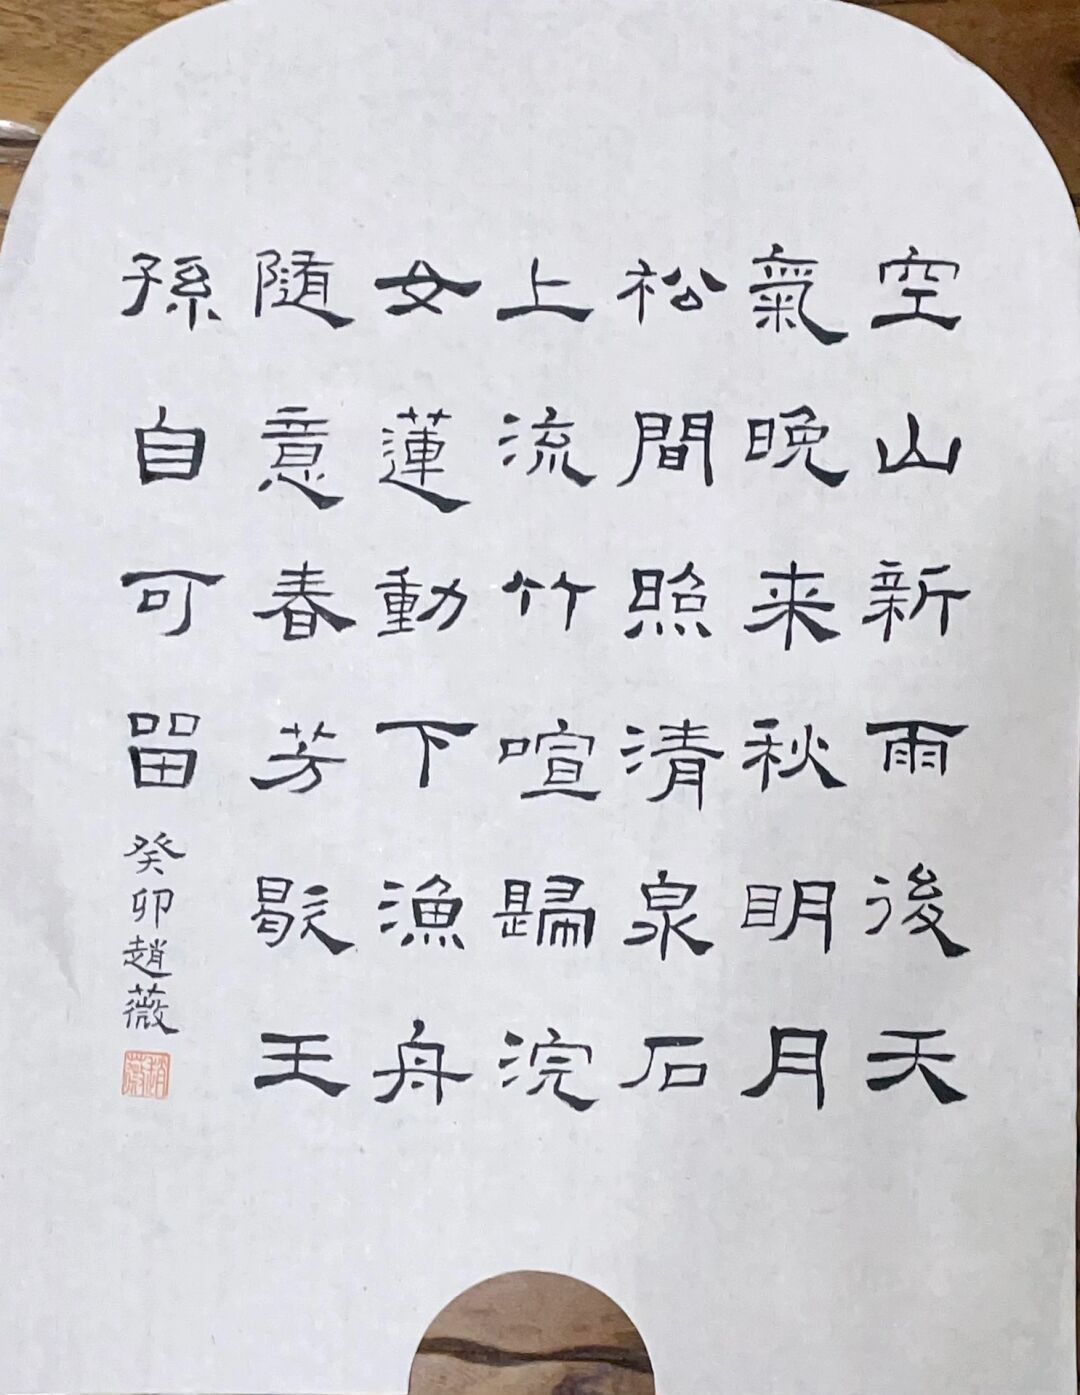 空山新雨後天
氣晚来秋明月
松間照清泉石
上流竹喧歸浣
女蓮動下漁舟
隨意春芳歇王
孫自可留
癸卯趙薇
趙薇